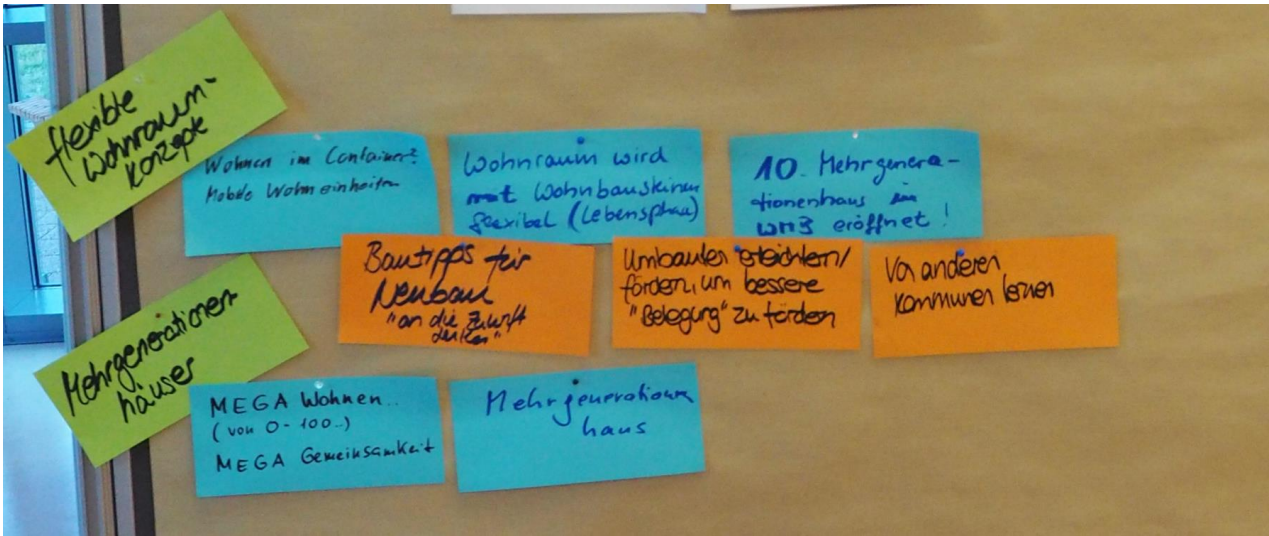 flexible
Wohnraum-
konzepte
Wohnen im Container?
Mobile Wohneinheiten
Wohnraum wird
mit Wohnbausteinen
flexibel (Lebensphase)
10. Mehrgenera-
tionenhaus in
eröffnet!
Bautipps für
Neubau
"an die Zukunft
denken"
Umbauten erleichtern/
fördern, um bessere
"Belegung" zu fördern
Von anderen
Kommunen lernen
Mehrgenerationen
häuser
MEGA Wohnen..
(von 0-100..)
MEGA Gemeinsamkeit
Mehrgenerationen
haus